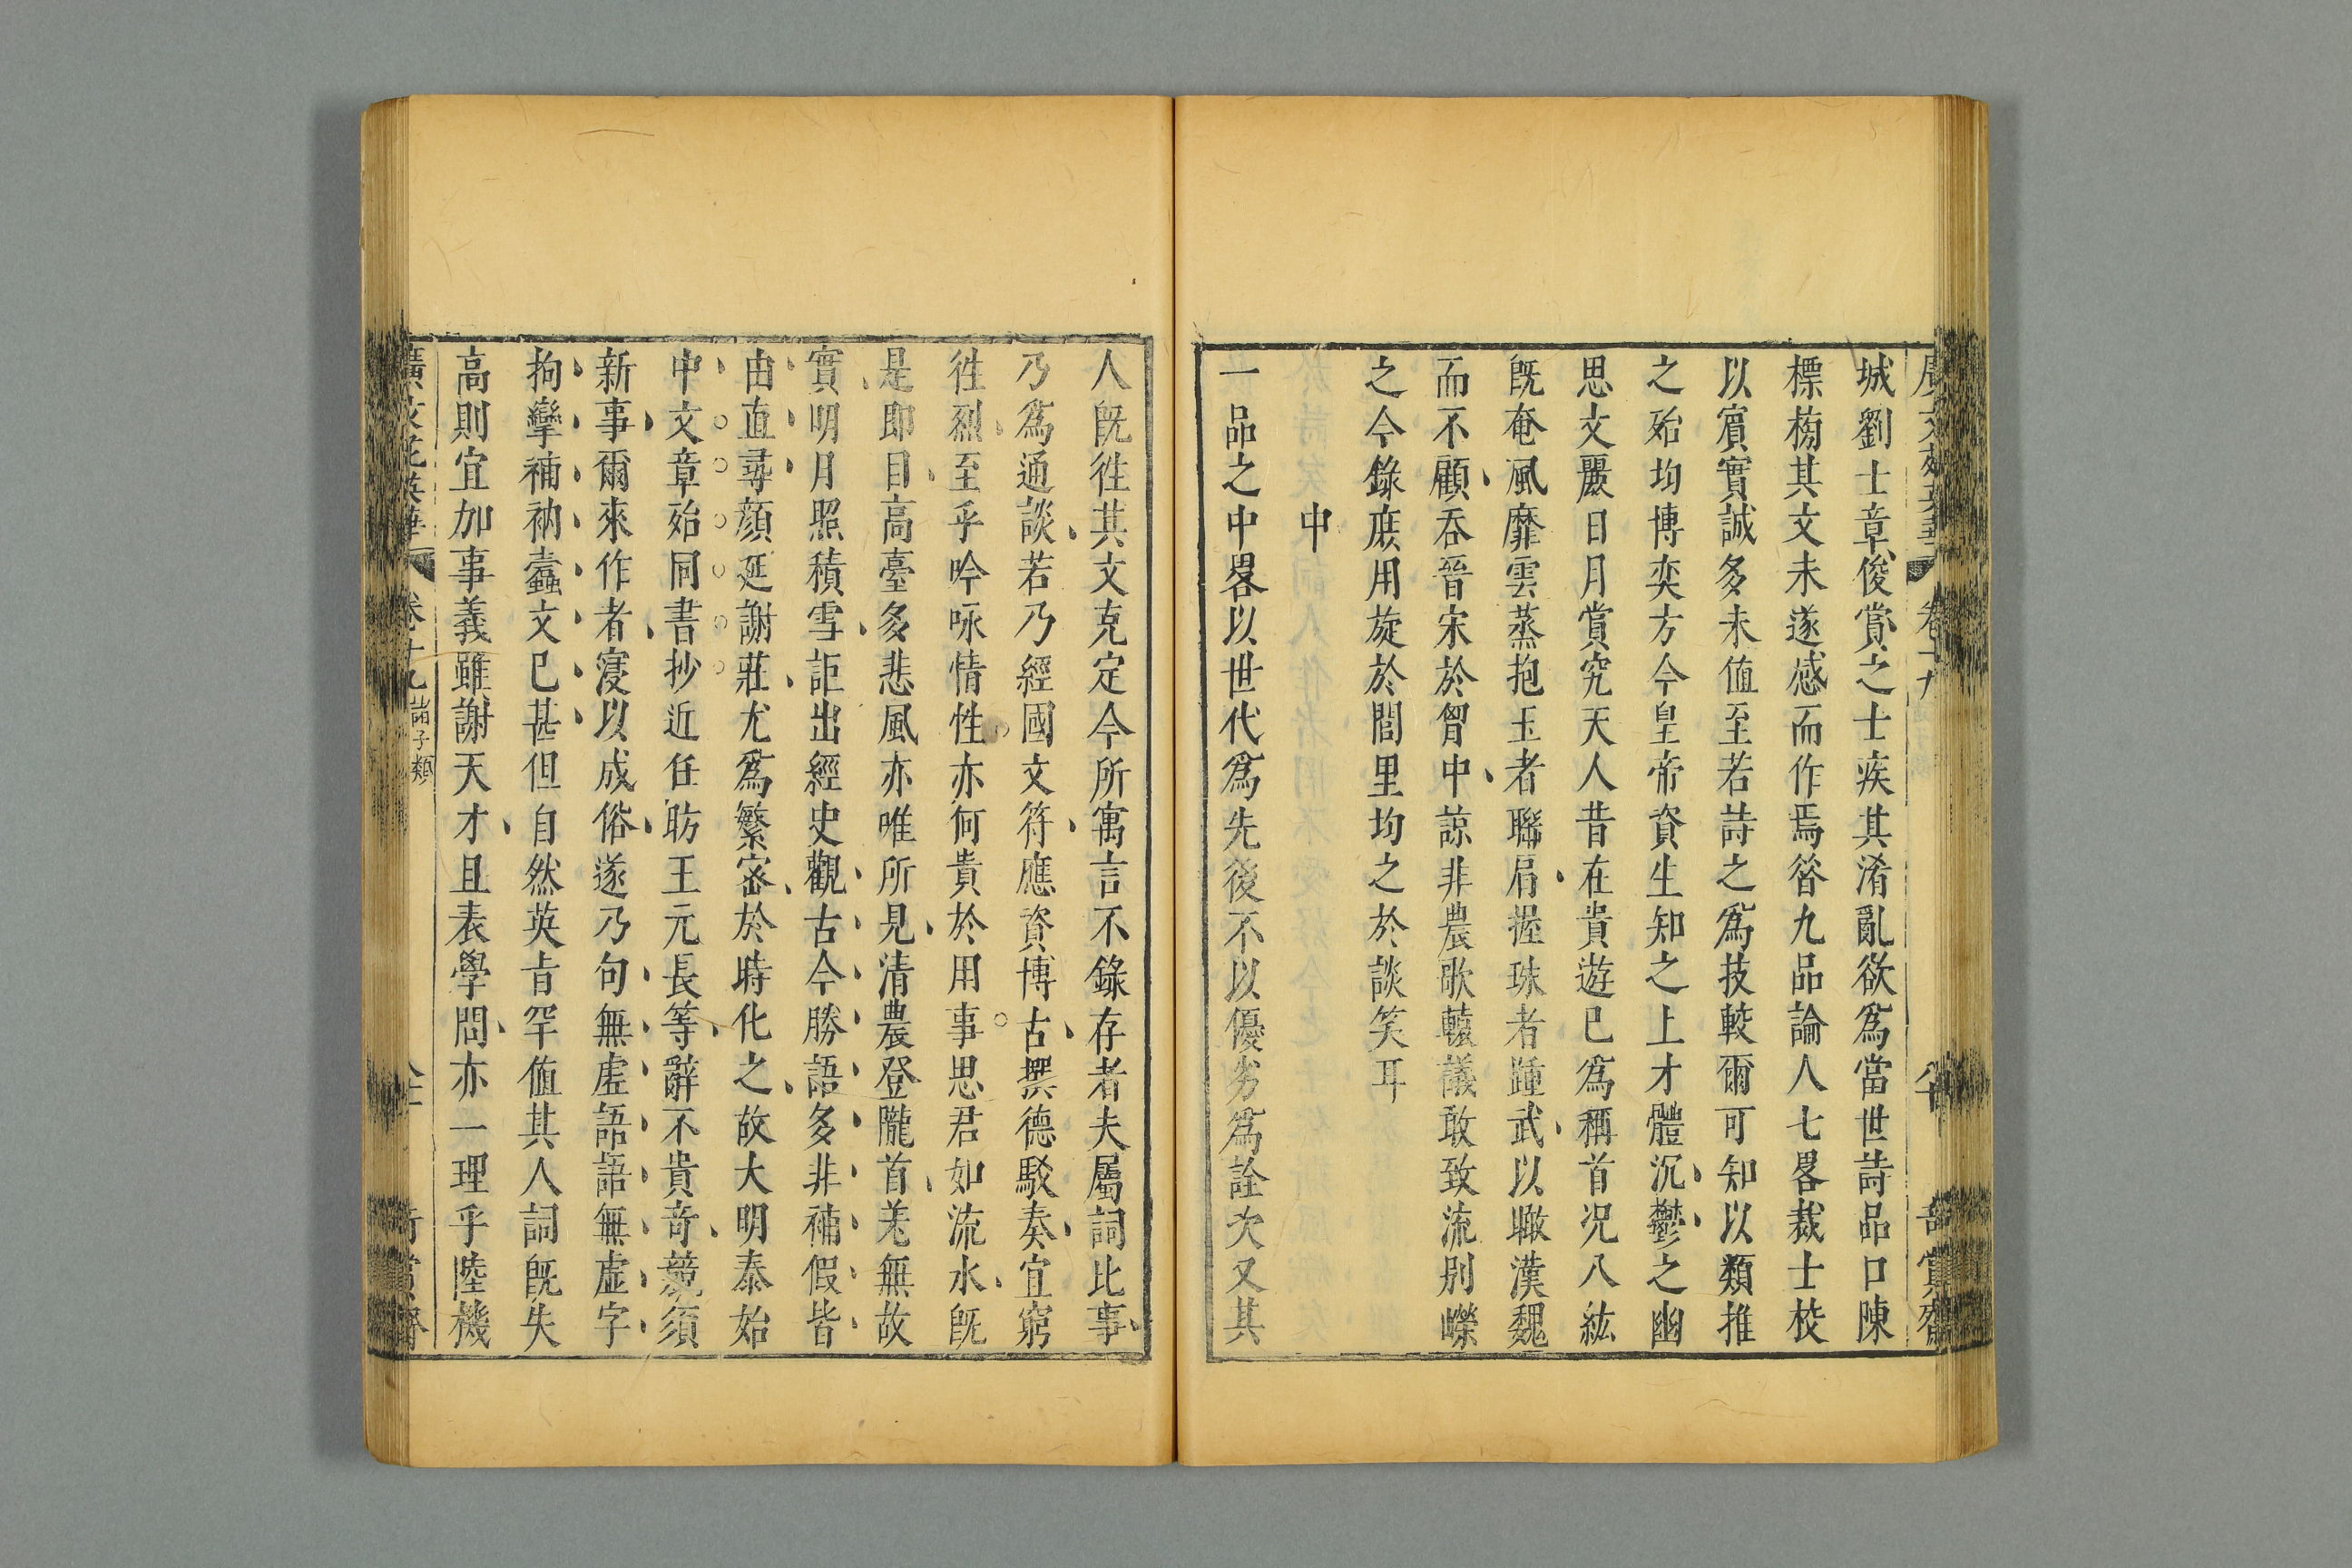 城劉士章俊賞之士疾其淆亂欲爲當世詩品口陳
標榜其文未遂感而作焉昝九品論人七畧裁士校
以賔實誠多未値至若詩之爲技較爾可知以類推
之殆均博奕方今皇帝資生知之上才體沉鬱之幽
思文麗日月賞究天人昔在貴遊已爲稱首况八紘
旣奄風靡雲蒸抱玉者聯肩握珠者踵武以瞰漢魏
而不顧吞晉宋於胷中諒非農歌轅議敢致流别嶸
之今錄庶用旋於閭里均之於談笑耳
中
一品之中畧以世代爲先後不以優劣爲詮次又其
人旣徃其文克定今所寓言不錄存者夫屬詞比事
乃爲通談若乃經國文符應資博古撰德駁奏宜窮
徃烈至乎吟咏情性亦何貴於用事思君如流水旣
是即目高臺多悲風亦唯所見清農登隴首羌無故
實明月照積雪詎出經史觀古今勝語多非補假皆
由直尋顔延謝莊尤爲繁密於時化之故大明泰始
中文章殆同書抄近任昉王元長等辭不貴奇競須
新事爾來作者寖以成俗遂乃句無虛語語無虛字
拘攣補衲蠹文已甚但自然英旨罕値其人詞旣失
高則宜加事義雖謝天才且表學問亦一理乎陸機
廣文苑英華 卷十九 諸子類 奇賞齋